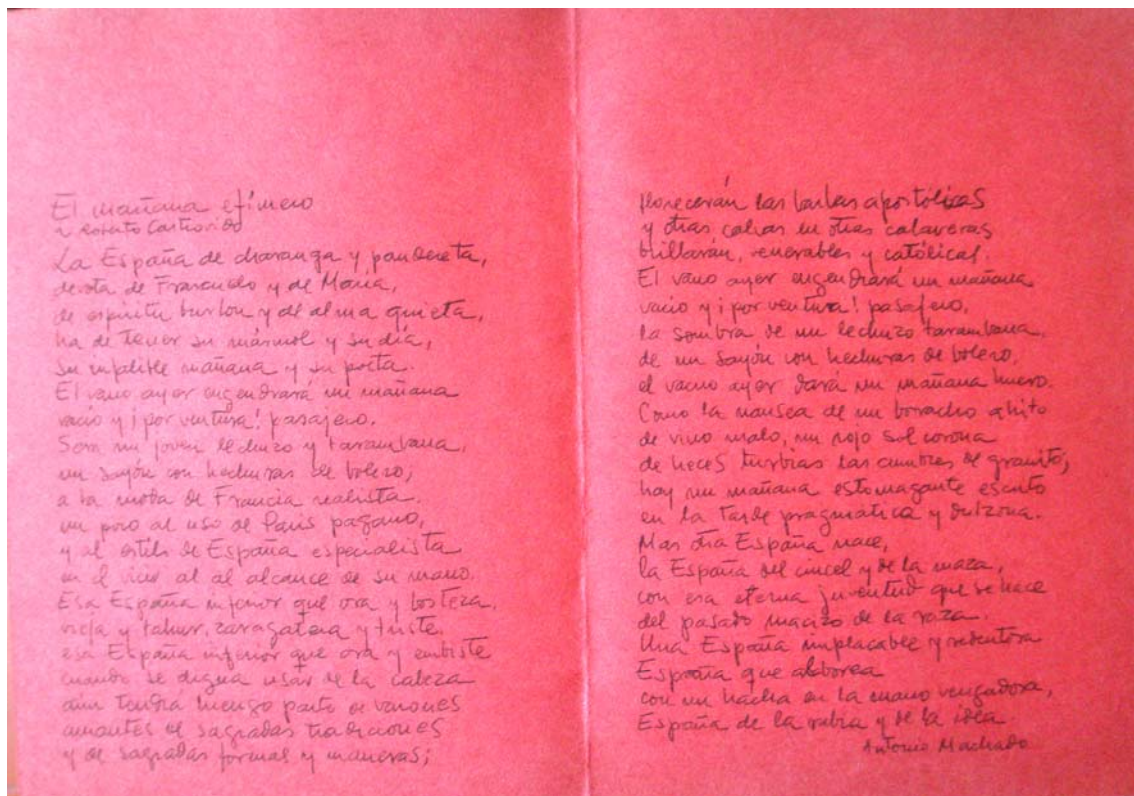 El mañana efímero
a Roberto Castrovido
La España de charanga y pandereta,
devota de Frascuelo y de María,
de espíritu burlón y de alma quieta,
ha de tener su mármol y su día,
su infalible mañana y su poeta.
El vano ayer engendrará un mañana
vacío y ¡por ventura! pasajero.
Será un joven lechuzo y tarambana,
un sayón con hechuras de bolero;
a la moda de Francia realista.
un poco al uso de París pagano,
y al estilo de España especialista
en el vicio al al alcance de su mano.
Esa España inferior que ora y bosteza,
vieja y tahur, zaragatera y triste.
esa España inferior que ora y embiste
cuando se digna usar de la cabeza
aún tendrá luengo parto de varones
amantes de sagradas tradiciones
y de sagradas formas y maneras;
florecerán las barbas apostólicas
y otras calvas en otras calaveras
brillarán, venerables y católicas.
El vano ayer engendrará un mañana
vacío y ¡por ventura! pasajero,
la sombra de un lechuzo tarambana.
de un sayón con hechuras de bolero,
el vacuo ayer dará un mañana huero.
Como la nausea de un borracho ahito
de vino malo, un rojo sol corona
de heces turbias las cumbres de granito;
hay un mañana estomagante escrito
en la tarde pragmática y dulzona.
Mas otra España nace,
la España del cincel y de la maza,
con esa eterna juventud que se hace
del pasado macizo de la raza.
Una España implacable y redentora
España que alborea
con un hacha en la mano vengadora,
España de la rabia y de la idea.
Antonio Machado